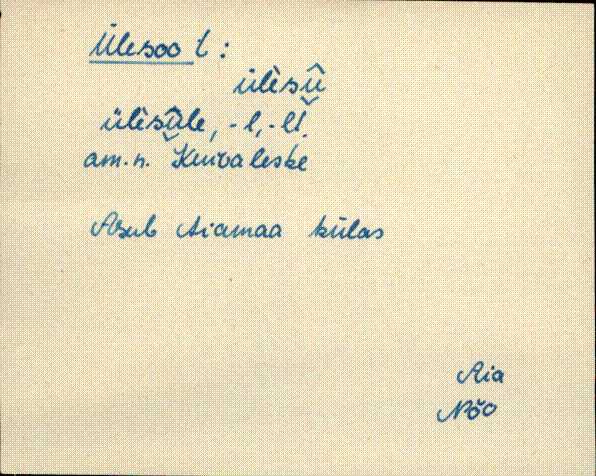 Ülesoo t:
ülèsū̬̂
ülèsū̬̂le, -l, -lt.
am. n. Kuivaleske
Asub Aiamaa külas
Aia
Nõo